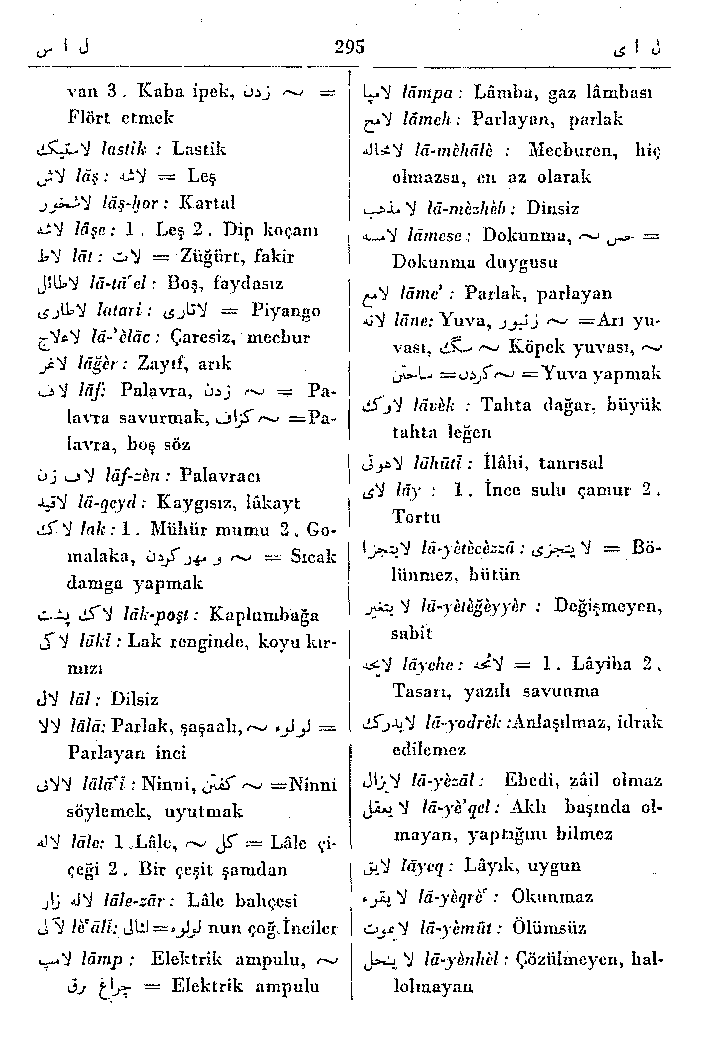 ل ا س 295 ل ا ی
van 3. Kaba ipek, ~ زدن =
Flört etmek
لاستیک lastik : Lastik
لاش lāş : لاشه = Leş
لاشخور lāş-ḫor : Kartal
لاشه lāşe : 1. Leş 2. Dip koçanı
لاط lāt : لات = Züğürt, fakir
لاطائل lā-tā'el : Boş, faydasız
لاطاری latari : لاتاری = Piyango
لاعلاج lā-'èlāc : Çaresiz, mecbur
لاغر lāğèr : Zayıf, arık
لاف lāf : Palavra, ~ زدن = Pa-
lavra savurmak, ~ گزاف =Pa-
lavra, boş söz
لاف زن lāf-zèn : Palavracı
لاقید lā-qeyd : Kaygısız, lâkayt
لاک lak : 1. Mühür mumu 2. Go-
malaka, ~ و مهر کردن = Sıcak
damga yapmak
لاک پشت lāk-poşt : Kaplumbağa
لاکی lākî : Lak renginde, koyu kır-
mızı
لال lāl : Dilsiz
لالا lālā : Parlak, şaşaalı, ~ لولوء =
Parlayan inci
لالائی lālā'î : Ninni, ~ گفتن =Ninni
söylemek, uyutmak
لاله lāle : 1. Lâle, ~ گل = Lâle çi-
çeği 2. Bir çeşit şamdan
لاله زار lāle-zār : Lâle bahçesi
لآلی lè'ālî : لولوء = لئال nun çoğ. İnciler
لامپ lāmp : Elektrik ampulu, ~
چراغ برق = Elektrik ampulu
لامپا lāmpa : Lâmba, gaz lâmbası
لامع lāmeh : Parlayan, parlak
لامحاله lā-mèhālè : Mecburen, hiç
olmazsa, en az olarak
لامذهب lā-mèzhèb : Dinsiz
لامسه lāmese : Dokunma, ~ حس =
Dokunma duygusu
لامع lāme' : Parlak, parlayan
لانه lāne : Yuva, ~ زنبور =Arı yu-
vası, ~ سگ Köpek yuvası, ~
ساختن = ~ کردن =Yuva yapmak
لاوک lāvèk : Tahta dağar, büyük
tahta leğen
لاهوتی lāhūtî : İlâhi, tanrısal
لای lāy : 1. İnce sulu çamur 2.
Tortu
لایتجزا lā-yètècèzzā : لا یتجزی = Bö-
lünmez, bütün
لا یتغیر lā-yètèğèyyèr : Değişmeyen,
sabit
لایحه lāyehe : لائحه = 1. Lâyiha 2.
Tasarı, yazılı savunma
لایدرک lā-yodrèk : Anlaşılmaz, idrak
edilemez
لایزال lā-yèzāl : Ebedi, zâil olmaz
لا یعقل lā-yè'qel : Aklı başında ol-
mayan, yaptığını bilmez
لایق lāyeq : Lâyık, uygun
لا یقرء lā-yèqrè' : Okunmaz
لا یموت lā-yèmūt : Ölümsüz
لا ینحل lā-yènhèl : Çözülmeyen, hal-
lolmayan